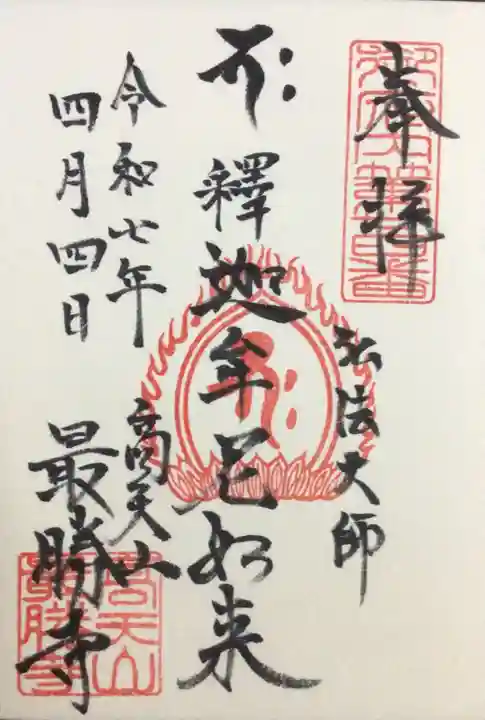 奉拝
弘法大師
釋迦牟尼如来
令和七年
四月四日
高天山
最勝寺
高天山
最勝寺